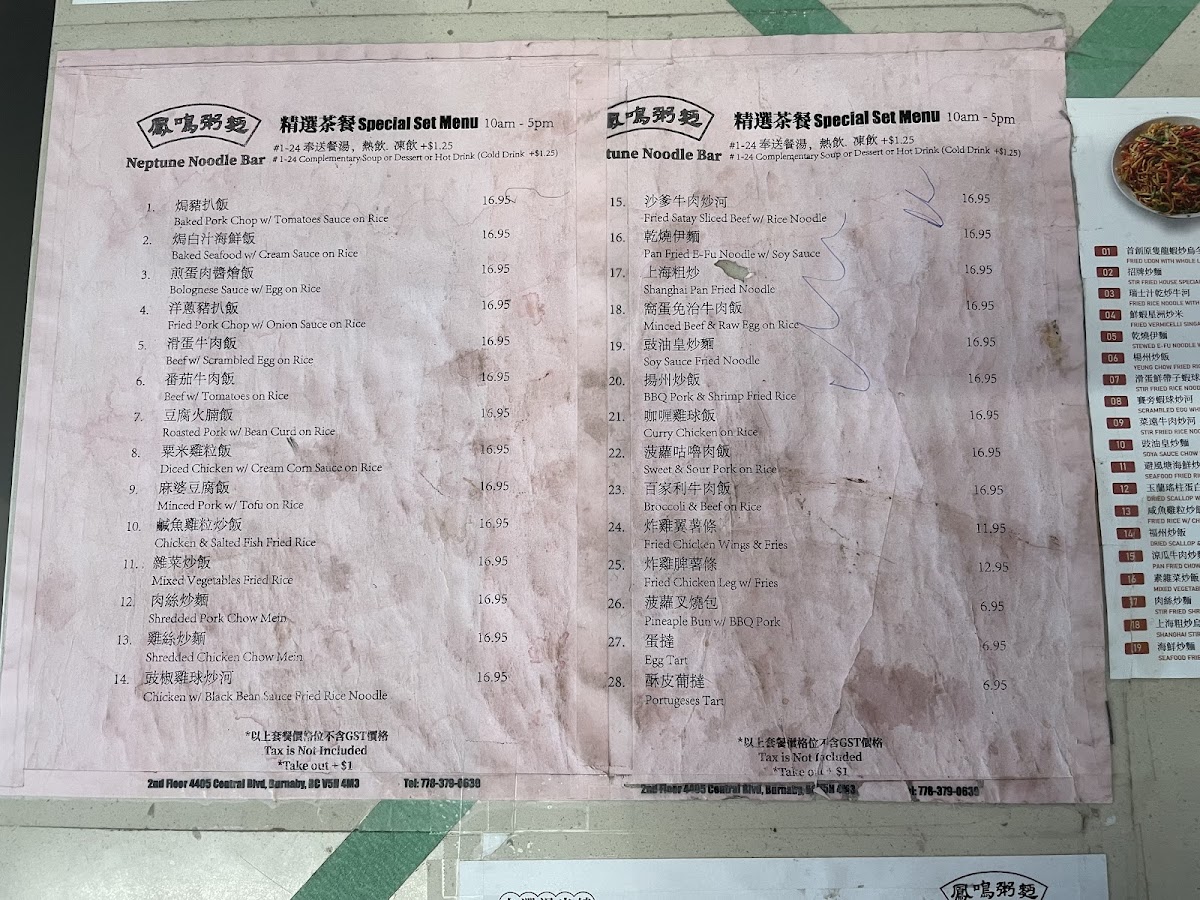 鳳鳴粥麵
精選茶餐 Special Set Menu 10am - 5pm
#1-24 奉送餐湯, 熱飲. 凍飲 +$1.25
Neptune Noodle Bar
# 1-24 Complementary Soup or Dessert or Hot Drink (Cold Drink +$1.25)
1. 焗豬扒飯 16.95
Baked Pork Chop w/ Tomatoes Sauce on Rice
2. 焗白汁海鮮飯 16.95
Baked Seafood w/ Cream Sauce on Rice
3. 煎蛋肉醬燴飯 16.95
Bolognese Sauce w/ Egg on Rice
4. 洋蔥豬扒飯 16.95
Fried Pork Chop w/ Onion Sauce on Rice
5. 滑蛋牛肉飯 16.95
Beef w/ Scrambled Egg on Rice
6. 番茄牛肉飯 16.95
Beef w/ Tomatoes on Rice
7. 豆腐火腩飯 16.95
Roasted Pork w/ Bean Curd on Rice
8. 粟米雞粒飯 16.95
Diced Chicken w/ Cream Corn Sauce on Rice
9. 麻婆豆腐飯 16.95
Minced Pork w/ Tofu on Rice
10. 鹹魚雞粒炒飯 16.95
Chicken & Salted Fish Fried Rice
11. 雜菜炒飯 16.95
Mixed Vegetables Fried Rice
12. 肉絲炒麵 16.95
Shredded Pork Chow Mein
13. 雞絲炒麵 16.95
Shredded Chicken Chow Mein
14. 豉椒雞球炒河 16.95
Chicken w/ Black Bean Sauce Fried Rice Noodle
*以上套餐價格位不含GST價格
Tax is Not Included
*Take out + $1
2nd Floor 4405 Central Blvd, Burnaby, BC V5H 4M3 Tel: 778-379-0630
鳳鳴粥麵
精選茶餐 Special Set Menu 10am - 5pm
#1-24 奉送餐湯, 熱飲. 凍飲 +$1.25
tune Noodle Bar
# 1-24 Complementary Soup or Dessert or Hot Drink (Cold Drink +$1.25)
15. 沙爹牛肉炒河 16.95
Fried Satay Sliced Beef w/ Rice Noodle
16. 乾燒伊麵 16.95
Pan Fried E-Fu Noodle w/ Soy Sauce
17. 上海粗炒 16.95
Shanghai Pan Fried Noodle
18. 窩蛋免治牛肉飯 16.95
Minced Beef & Raw Egg on Rice
19. 豉油皇炒麵 16.95
Soy Sauce Fried Noodle
20. 揚州炒飯 16.95
BBQ Pork & Shrimp Fried Rice
21. 咖喱雞球飯 16.95
Curry Chicken on Rice
22. 菠蘿咕嚕肉飯 16.95
Sweet & Sour Pork on Rice
23. 百家利牛肉飯 16.95
Broccoli & Beef on Rice
24. 炸雞翼薯條 11.95
Fried Chicken Wings & Fries
25. 炸雞脾薯條 12.95
Fried Chicken Leg w/ Fries
26. 菠蘿叉燒包 6.95
Pineapple Bun w/ BBQ Pork
27. 蛋撻 6.95
Egg Tart
28. 酥皮葡撻 6.95
Portugeses Tart
*以上套餐價格位不含GST價格
Tax is Not Included
*Take out + $1
2nd Floor 4405 Central Blvd, Burnaby, BC V5H 4M3 Tel: 778-379-0630
01 首創原隻龍蝦炒烏冬
FRIED UDON WITH WHOLE L
02 招牌炒麵
STIR FRIED HOUSE SPECIAL
03 瑞士汁乾炒牛河
FRIED RICE NOODLE WITH
04 鮮蝦星洲炒米
FRIED VERMICELLI SING
05 乾燒伊麵
STEWED E-FU NOODLE W
06 楊州炒飯
YEUNG CHOW FRIED RI
07 滑蛋鮮帶子蝦球
STIR FRIED RICE NOOD
08 賽旁蝦球炒河
SCRAMBLED EGG WI
09 菜遠牛肉炒河
STIR FRIED RICE NOO
10 豉油皇炒麵
SOYA SAUCE CHOW
11 避風塘海鮮炒
SEAFOOD FRIED RI
12 玉蘭瑤柱蛋白
DRIED SCALLOP W
13 咸魚雞粒炒飯
FRIED RICE W/ CH
14 福州炒飯
DRIED SCALLOP &
15 涼瓜牛肉炒
PAN FRIED CHOW
16 素雜菜炒飯
MIXED VEGETAB
17 肉絲炒麵
STIR FRIED SHR
18 上海粗炒烏
SHANGHAI STIR
19 海鮮炒麵
SEAFOOD FRIE
鳳鳴粥麵